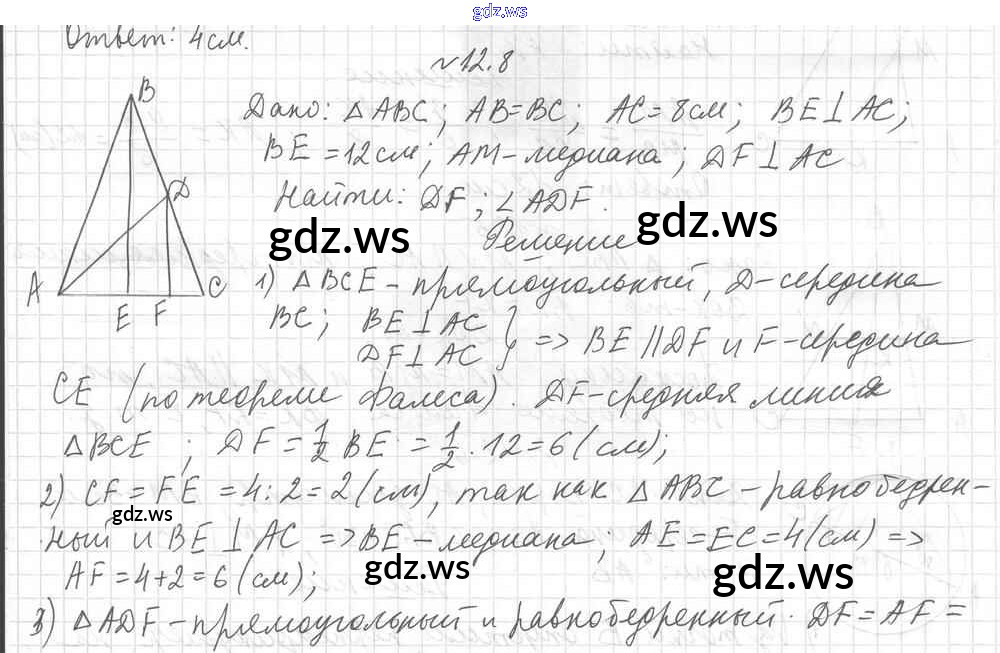 gdz.ws
Ответ: 4см.
№12.8
Дано: △ABC; AB=BC; AC=8см; BE⊥AC;
BE=12см; AM-медиана; DF⊥AC
Найти: DF; ∠ADF.
gdz.ws Решение gdz.ws
B
D
A E F C
1) △BCE-прямоугольный, D-середина
BC; BE⊥AC
DF⊥AC } => BE∥DF и F-середина
CE (по теореме Фалеса). DF-средняя линия
△BCE; DF=1/2 BE=1/2·12=6(см);
2) CF=FE=4:2=2(см), так как △ABC-равнобедрен-
gdz.ws
ный и BE⊥AC => BE-медиана; AE=EC=4(см) =>
AF=4+2=6(см); gdz.ws gdz.ws
3) △ADF-прямоугольный и равнобедренный. DF=AF=